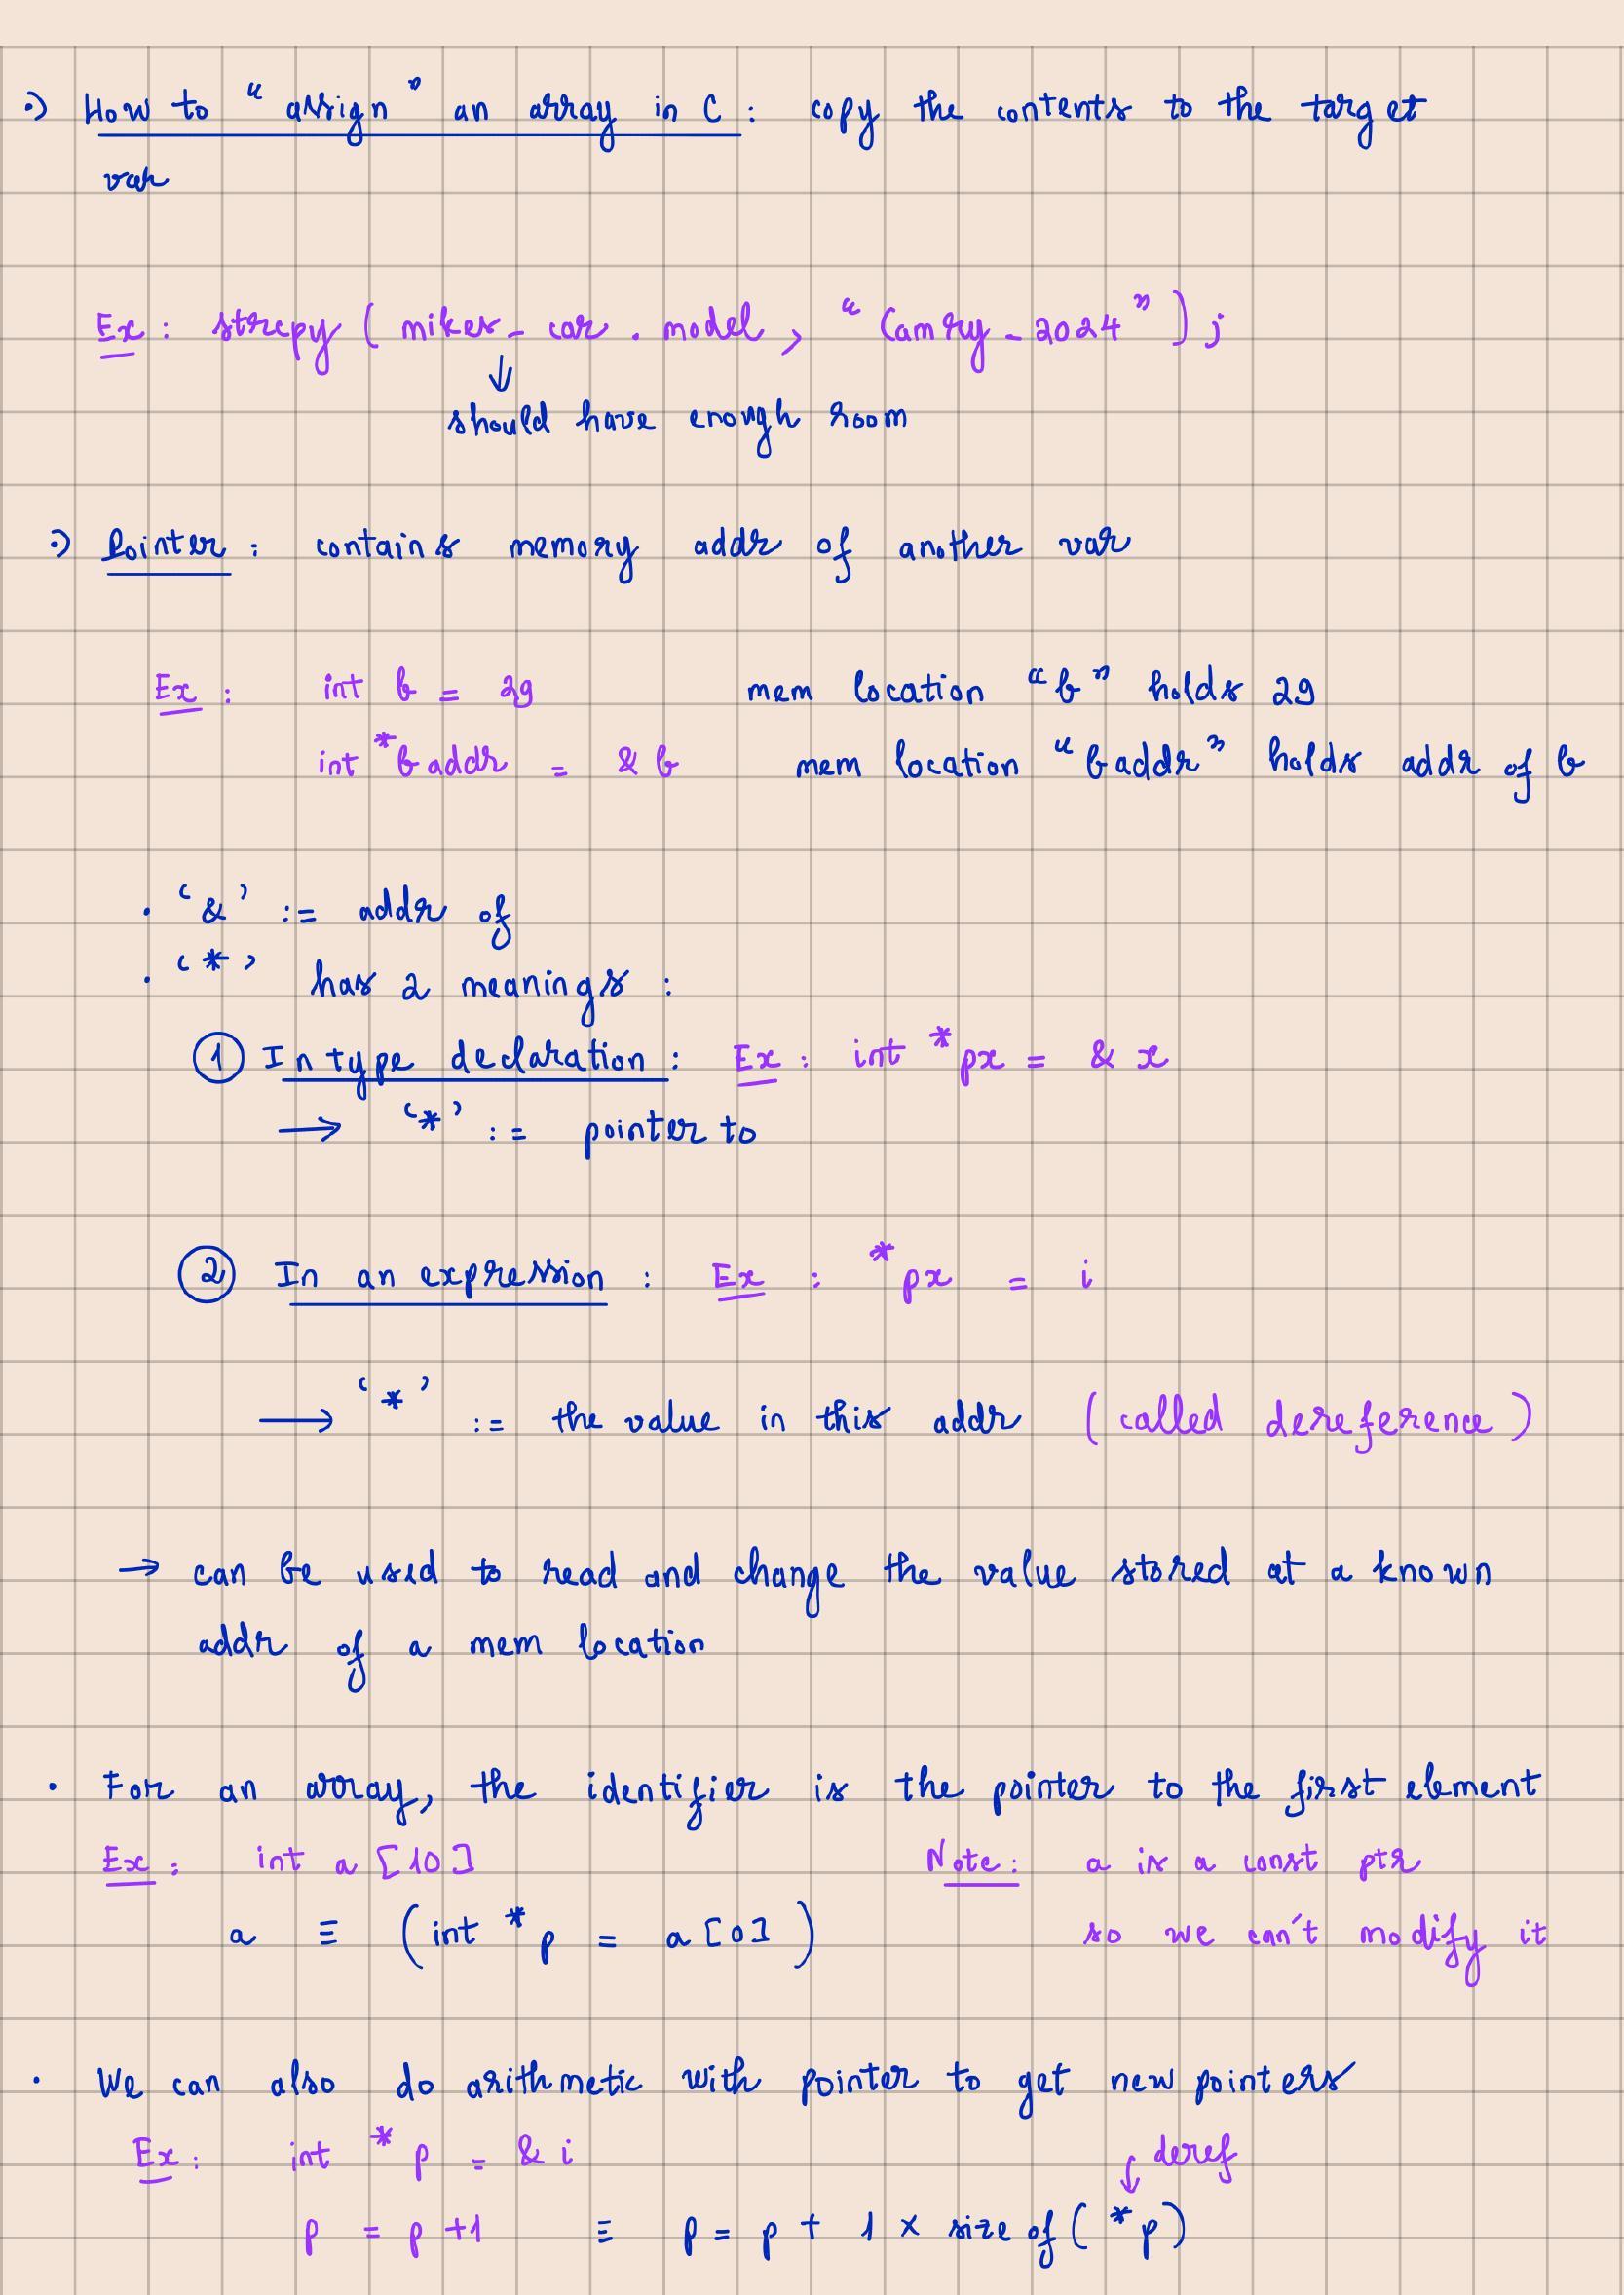 :) How to "assign" an array in C : copy the contents to the target
var
Ex : strcpy ( mikes_car . model , "Camry_2024" ) ;
↓
should have enough room
:) Pointer : contains memory addr of another var
Ex : int b = 29 mem location "b" holds 29
int *baddr = &b mem location "baddr" holds addr of b
• '&' := addr of
• '*' has 2 meanings :
① In type declaration : Ex : int *px = & x
→ '*' := pointer to
② In an expression : Ex : *px = i
→ '*' := the value in this addr (called dereference)
→ can be used to read and change the value stored at a known
addr of a mem location
• For an array, the identifier is the pointer to the first element
Ex : int a [10] Note : a is a const ptr
a ≡ (int *p = a[0]) so we can't modify it
• We can also do arithmetic with pointer to get new pointers
Ex : int *p = & i ↓ deref
p = p +1 ≡ p = p + 1 × size of ( *p )